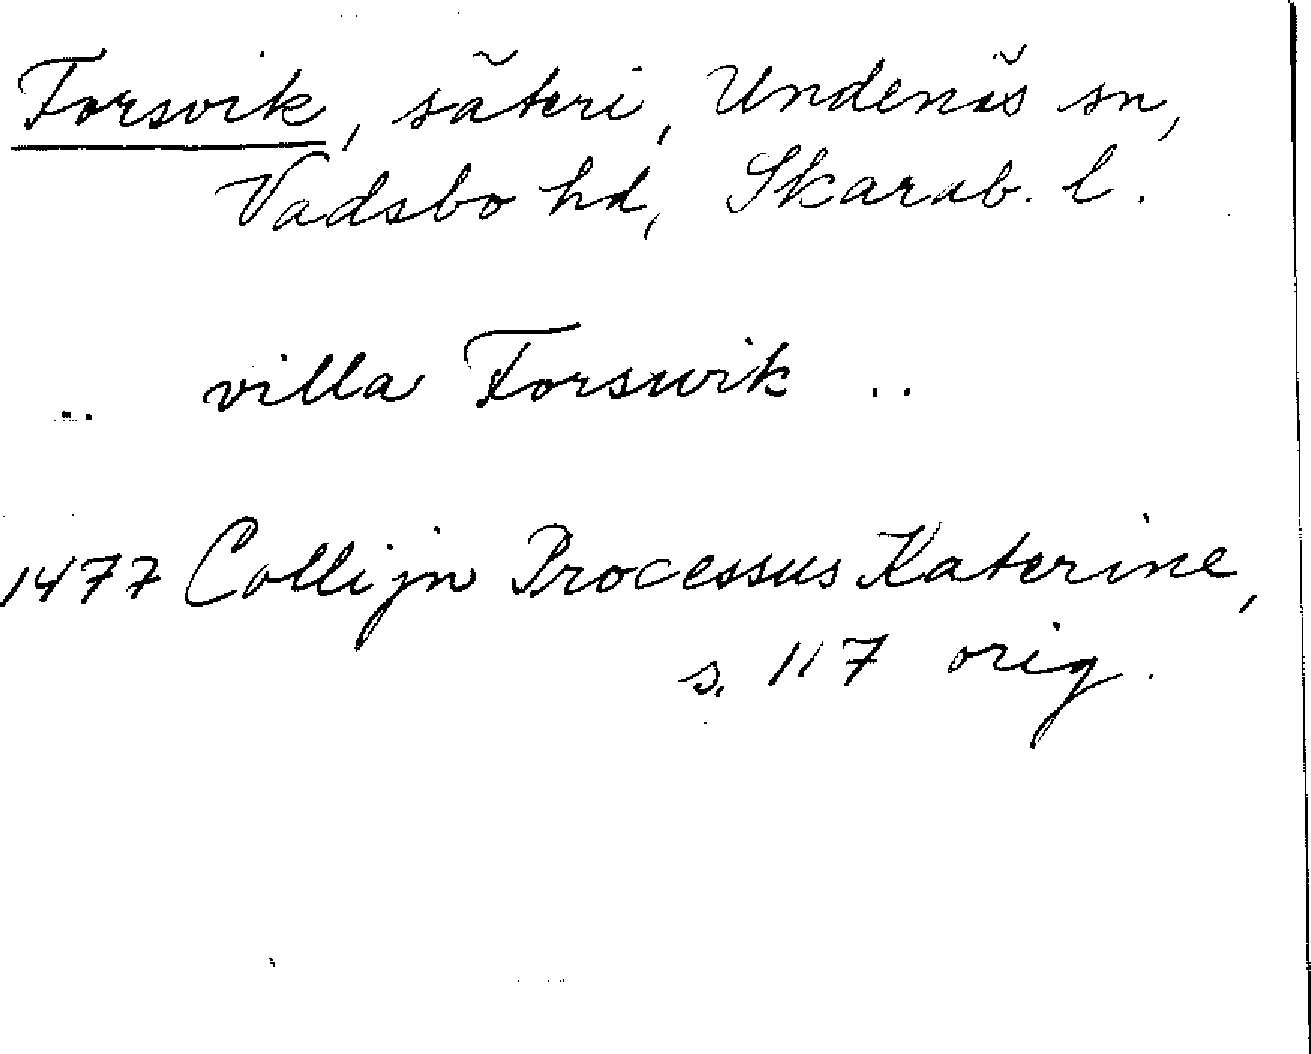 Forsvik, säteri, Undenäs sn,
Vadsbo hd, Skarab. l.
.. villa Forswik ..
1477 Collijn Processus Katerine,
s. 117 orig.